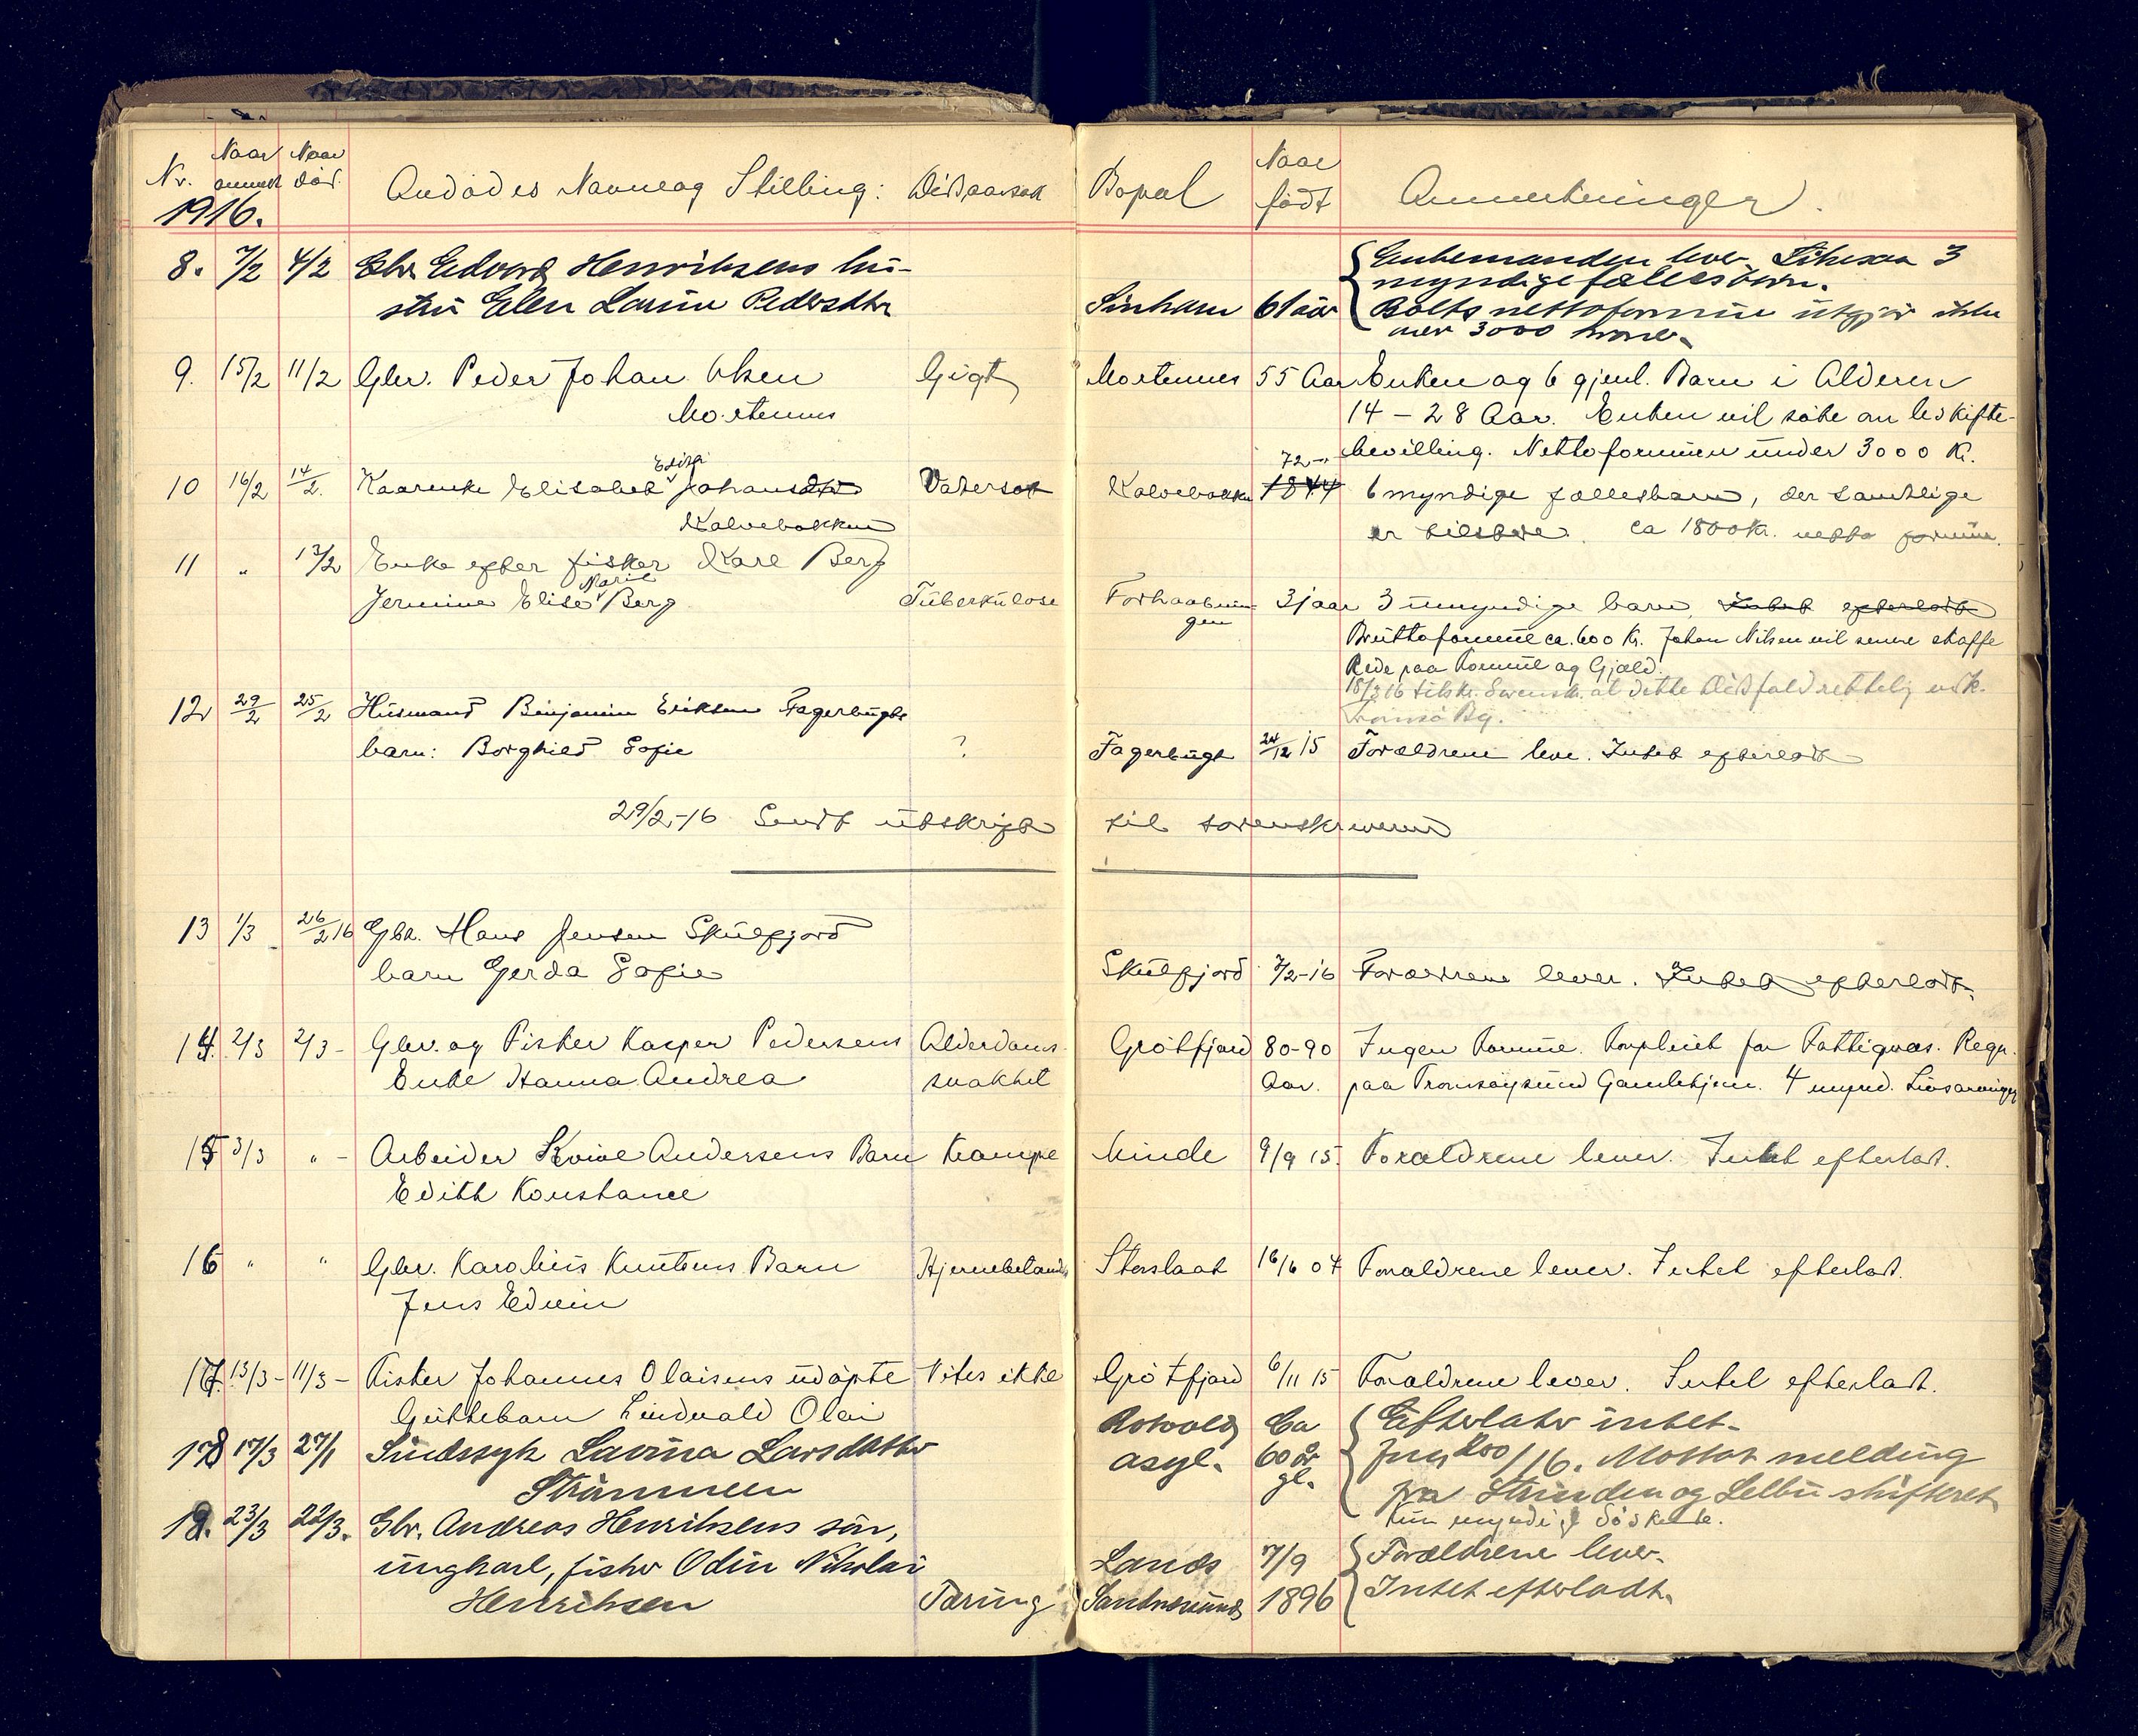 Nr. Naar anmeldt Naar död. Avdödes Navn og Stilling: Dödsaarsak Bopæl Naar födt Anmerkninger.
1916.
8. 7/2 4/2 Gbr. Edvard Henriksens hu- Enkemanden lever. Likesaa 3
myndige fællesbörn.
stru Elen Larine Pedersdtr Sinkaen 61 aar Boets nettoformue utgjör ikke
over 3000 kroner.
9. 15/2 11/2 Gbr. Peder Johan Olsen Gigt Mortennes 55 Aar Enken og 6 gjenl. Barn i Alderen
Mortennes 14 – 28 Aar. Enken vil söke om uskifte-
bevilling. Nettoformuen under 3000 Kr.
Edita 72
10 16/2 14/2. Kaarenke Elisabet Johansdtr Vatersot Kalvebakken 1844 6 myndige fællesbarn, der samtlige
Kalvebakken er tilstede. ca 1800 kr. netto formue.
11 " 13/2 Enke efter fisker Karl Berg
Marie
Jermine Elise Berg Tuberkulose Forhaabnin- 3 umyndige barn. Intet efterladt
gen Bruttoformue ca. 600 Kr. Johan Nilsen vil senere skaffe
Rede paa Formue og Gjæld.
18/3 16 tilskr. Sorensk. at dette Dödsfald rettelig vedk.
Tromsö By.
12 29/2 25/2 Husmand Benjamin Eriksen Fagerbugts
barn: Borghild Sofie ? Fagerbugt 24/12 15 Forældrene leve. Intet efterladt
29/2-16 Sendt utskrift til sorenskriveren
13 1/3 26/2 16 Gbr. Hans Jensen Skulfjord
barn Gerda Sofie Skulfjord 7/2-16 Forældrene lever. Intet efterladt.
14. 2/3 2/3 – Gbr. og Fisker Kasper Pedersens Alderdoms- Grötfjord 80-90 Ingen Formue. Forpleiet for Fattigvæs. Regn.
Enke Hanna Andrea svakhet Aar. paa Tromsöysund Gamlehjem. 4 mynd. Livsarvinger
15 3/3 " – Arbeider Kvive Andersens Barn Krampe Minde 9/9 15. Forældrene lever. Intet efterladt.
Edith Konstance
16 " " Gbr. Karolius Knutsens Barn Hjernebetændelse Storslaat 16/6 04 Forældrene lever. Intet efterladt.
Jens Edvin
17. 13/3 – 11/3 – Fisker Johannes Olaisens udöpte Vites ikke Grötfjord 6/11 15 Forældrene lever. Intet efterladt.
Guttebarn Lindvald Olai
18 17/3 27/1 Sindssyk Lavina Larsdatter Rotvold Ca Efterlater intet.
Strömmen asyl. 60 år gl. Jnr. 200/16. Mottat melding
fra Strinden og Selbu skifteret
Kun myndige Söskende.
19. 23/3 22/3. Gbr. Andreas Henriksens sön,
ungkarl, fisker Odin Nikolai Lands 7/9 Forældrene lever.
Henriksen Tæring Sandnessund 1896 Intet efterladt.